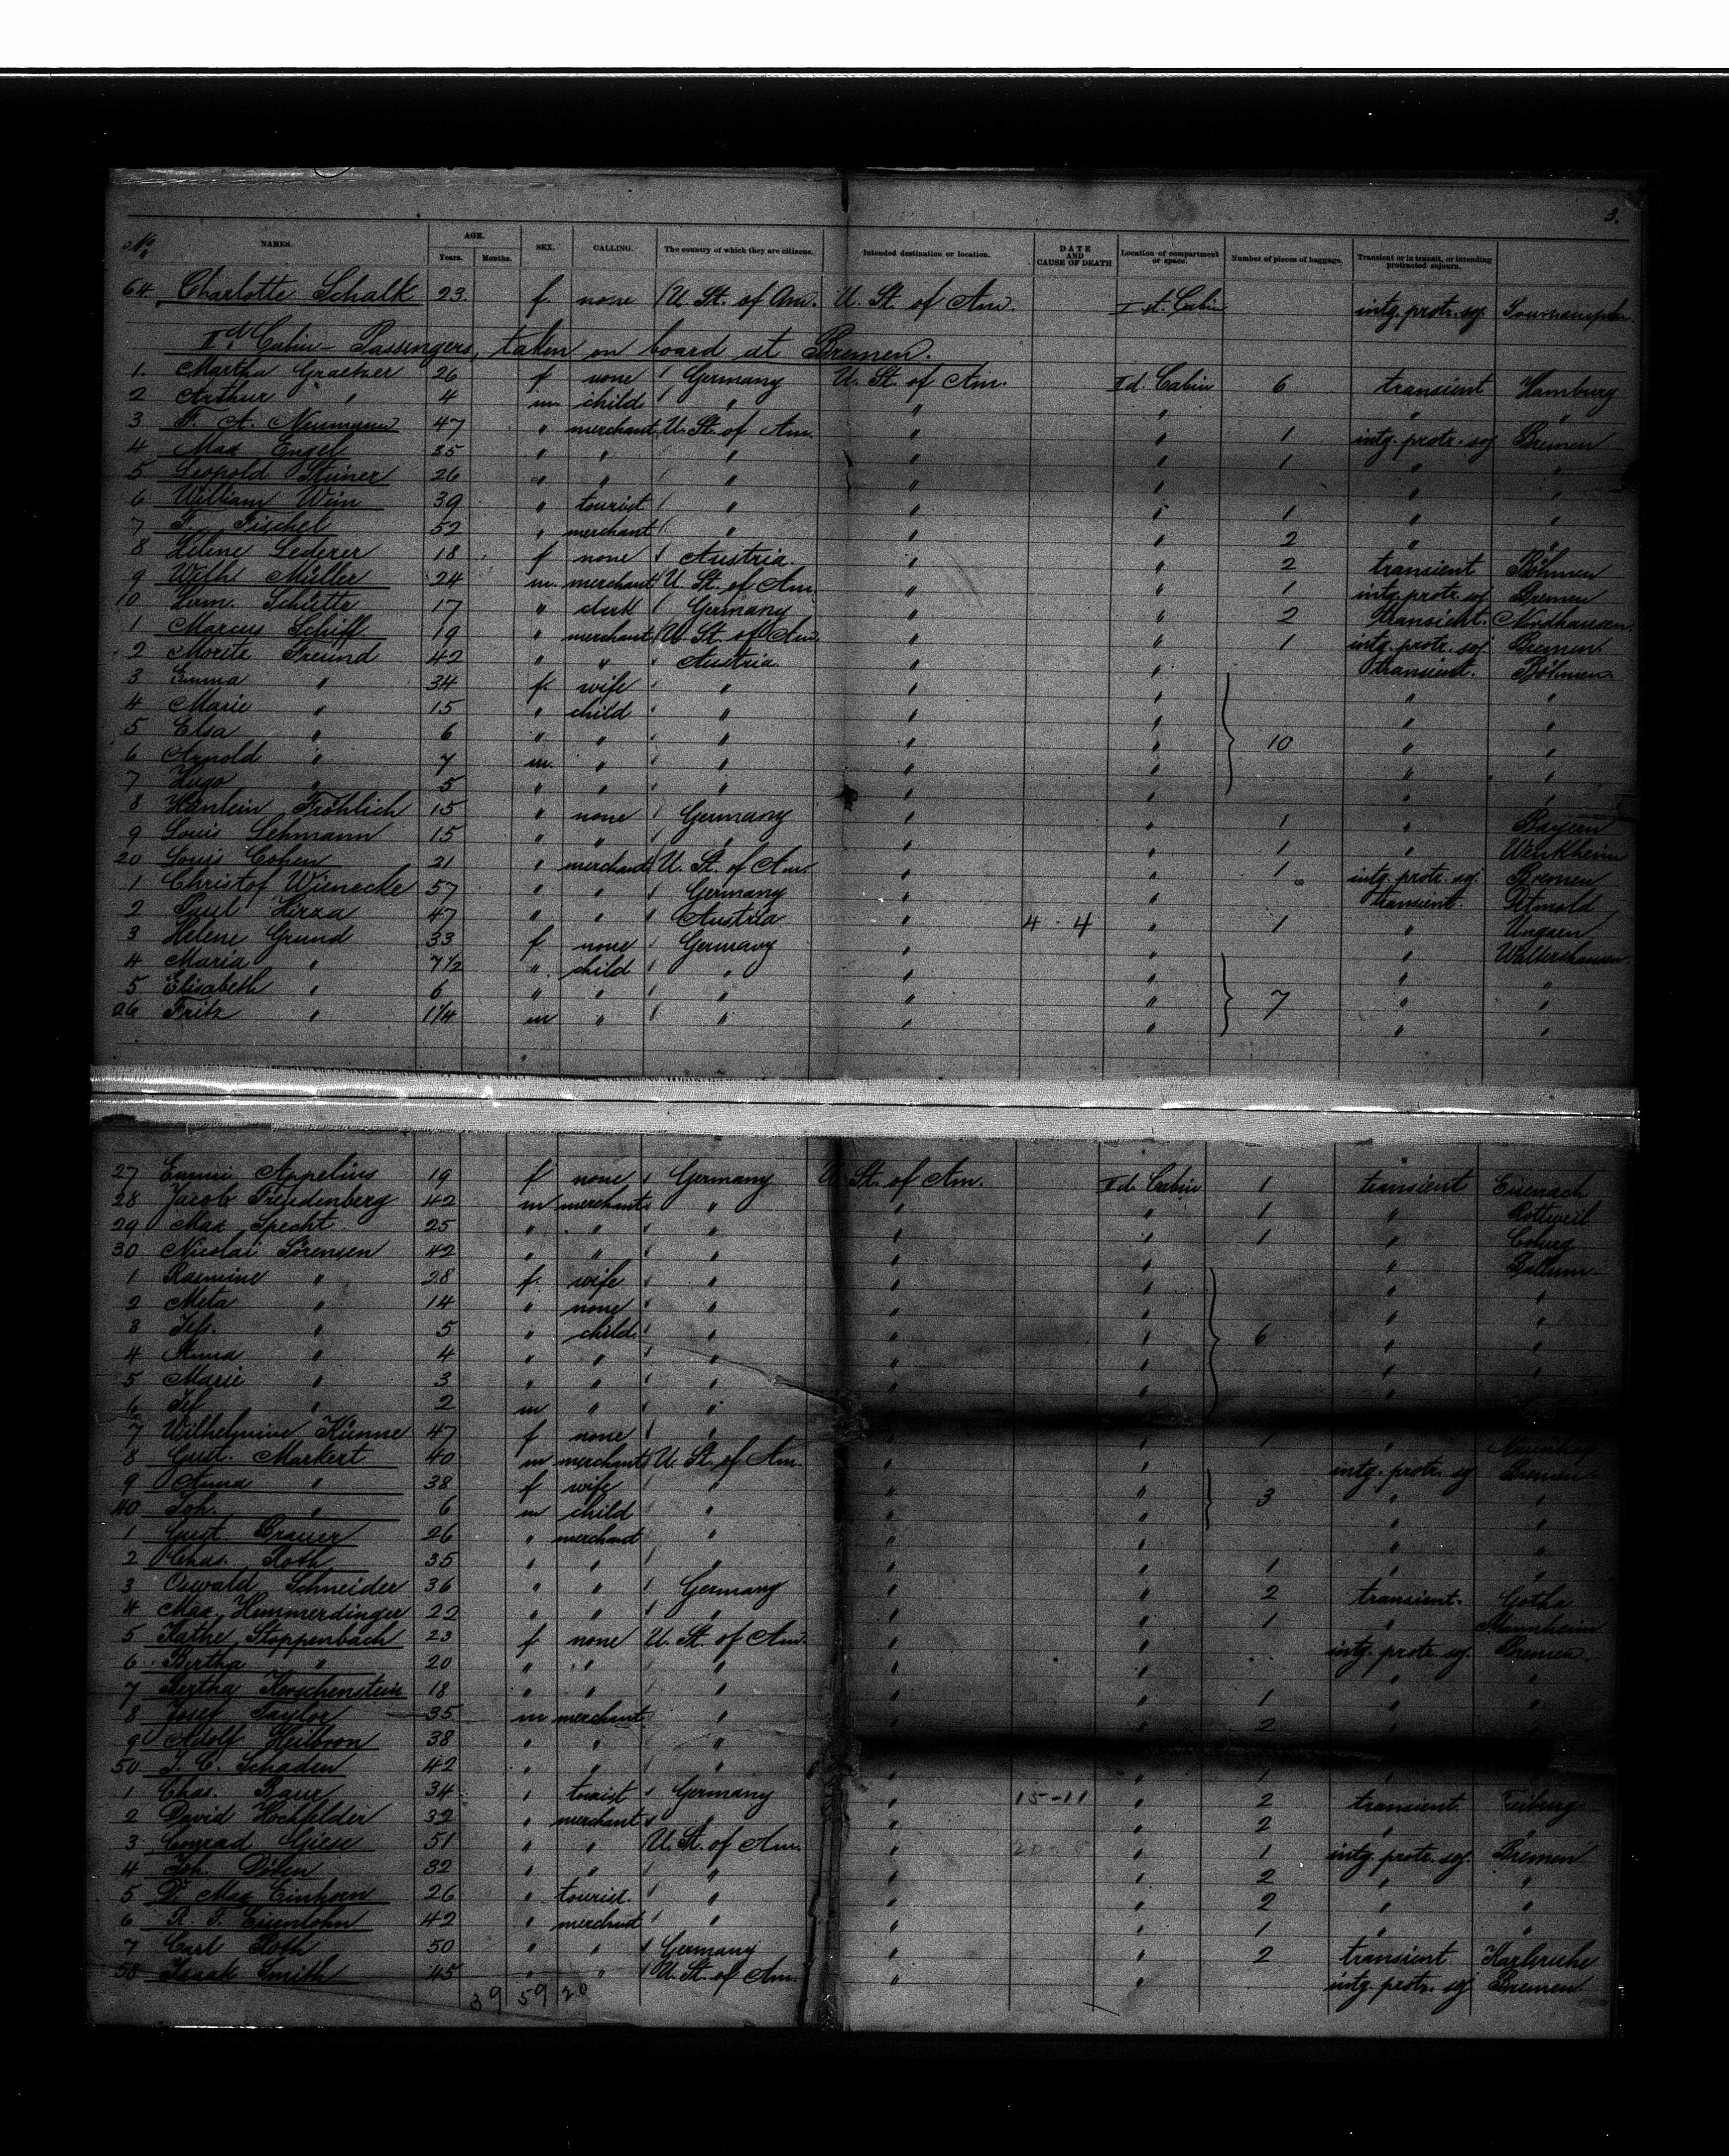 3.
No. NAMES. AGE. Years. Months. SEX. CALLING. The country of which they are citizens. Intended destination or location. DATE AND CAUSE OF DEATH Location of compartment or space. Number of pieces of baggage. Transient or in transit, or intending protracted sojourn.
64. Charlotte Schalk 23. f. none U. St. of Am. U. St. of Am. I st. Cabin intg. protr. soj.
IId Cabin-Passengers, taken on board at Bremen.
1. Martha Graetzer 26 f none Germany U. St. of Am. IId. Cabin 6 transient Hamburg
2 Arthur " 4 m child " " " " "
3 F. A. Neumann 47 " merchant U. St. of Am. " " 1 intg. protr. soj Bremen
4 Max Engel 35 " " " " " 1 " "
5 Leopold Steiner 26 " " " " " " "
6 William Wein 39 " tourist " " " 1 " "
7 Fischel 52 " merchant " " " 2 " "
8 Helene Lederer 18 f none Austria. " " 2 transient Böhmen
9 Wilh. Müller 24 m. merchant U. St. of Am. " " 1 intg. protr. soj Bremen
10 Herm. Schütte 17 " clerk Germany " " 2 transient. Nordhausen.
1 Marcus Schiff 19 " merchant U. St. of Am. " " 1 intg. protr. soj Bremen.
2 Moritz Freund 42 " " Austria " " transient. Böhmen
3 Emma " 34 f. wife " " " " "
4 Marie " 15 " child " " " " "
5 Elsa " 6 " " " " " 10 " "
6 Arnold " 7 m. " " " " " "
7 Hugo " 5 " " " " " " "
8 Hänlein Fröhlich 15 " none Germany " " 1 " Bayern
9 Louis Lehmann 15 " " " " " 1 " Wenkheim
20 Louis Cohen 21 " merchant U. St. of Am. " " 1 intg. protr. soj. Bremen
1 Christof Wienecke 57 " " Germany " " transient. Detmold
2 Paul Hirza 47 " " Austria " 4 - 4 " 1 " Ungarn
3 Helene Grund 33 f none Germany " " " Waltershausen.
4 Maria " 7 1/2 " child " " " " "
5 Elisabeth " 6 " " " " " 7 " "
26 Fritz " 1 1/4 m " " " " " "
27 Appelius 19 f none Germany U. St. of Am. IId. Cabin 1 transient Eisenach
28 Jacob Freudenberg 42 m merchant " " " 1 " Rottweil
29 Max Specht 25 " " " " " 1 " Coburg
30 Nicolai Sörensen 42 " " " " " " Ballum
1 Rasmine " 28 f. wife " " " " "
2 Meta " 14 " none " " " " "
3 " 5 " child " " " 6 " "
4 Anna " 4 " " " " " " "
5 Marie " 3 " " " " " "
6 " 2 m " "
7 Wilhelmine Künne 47 f none " " " 1 "
8 Gust. Markert 40 m merchant U. St. of Am. " " intg. protr. soj Bremen
9 Anna " 38 f wife " " " 3 " "
40 Joh. " 6 m child " " " " "
1 Gust. Grauer 26 " merchant " " " " "
2 Chas. Roth 35 " " " " " 1 " "
3 Oswald Schneider 36 " " Germany " " 2 transient. Gotha
4 Max Hemmerdinger 22 " " " " " 1 " Mannheim
5 Kathe Stoppenbach 23 f none U. St. of Am. " " intg. protr. soj. Bremen.
6 Bertha " 20 " " " " " " "
7 Bertha Kerschenstein 18 " " " " " 1 " "
8 Josef Taylor 35 m merchant " " " 2 " "
9 Adolf Heilbron 38 " " "
50 J. C. Schaden 42 " " " " 1 "
1 Chas. Baur 34 " tourist Germany " 15-11 " 2 transient.
2 David Hochfelder 32 " merchant " " " 2 " "
3 Conrad Giese 51 " " U. St. of Am. " " 1 intg. protr. soj. Bremen
4 Joh. 32 " " " " " 2 " "
5 Dr. Max Einhorn 26 " tourist. " " " 2 " "
6 R. F. Eisenlohr 42 " merchant " " " 1 " "
7 Carl Roth 50 " " Germany " " 2 transient Karlsruhe
58 Isaak Smith 45 " " U. St. of Am. " " intg. protr. soj Bremen
39 59 20